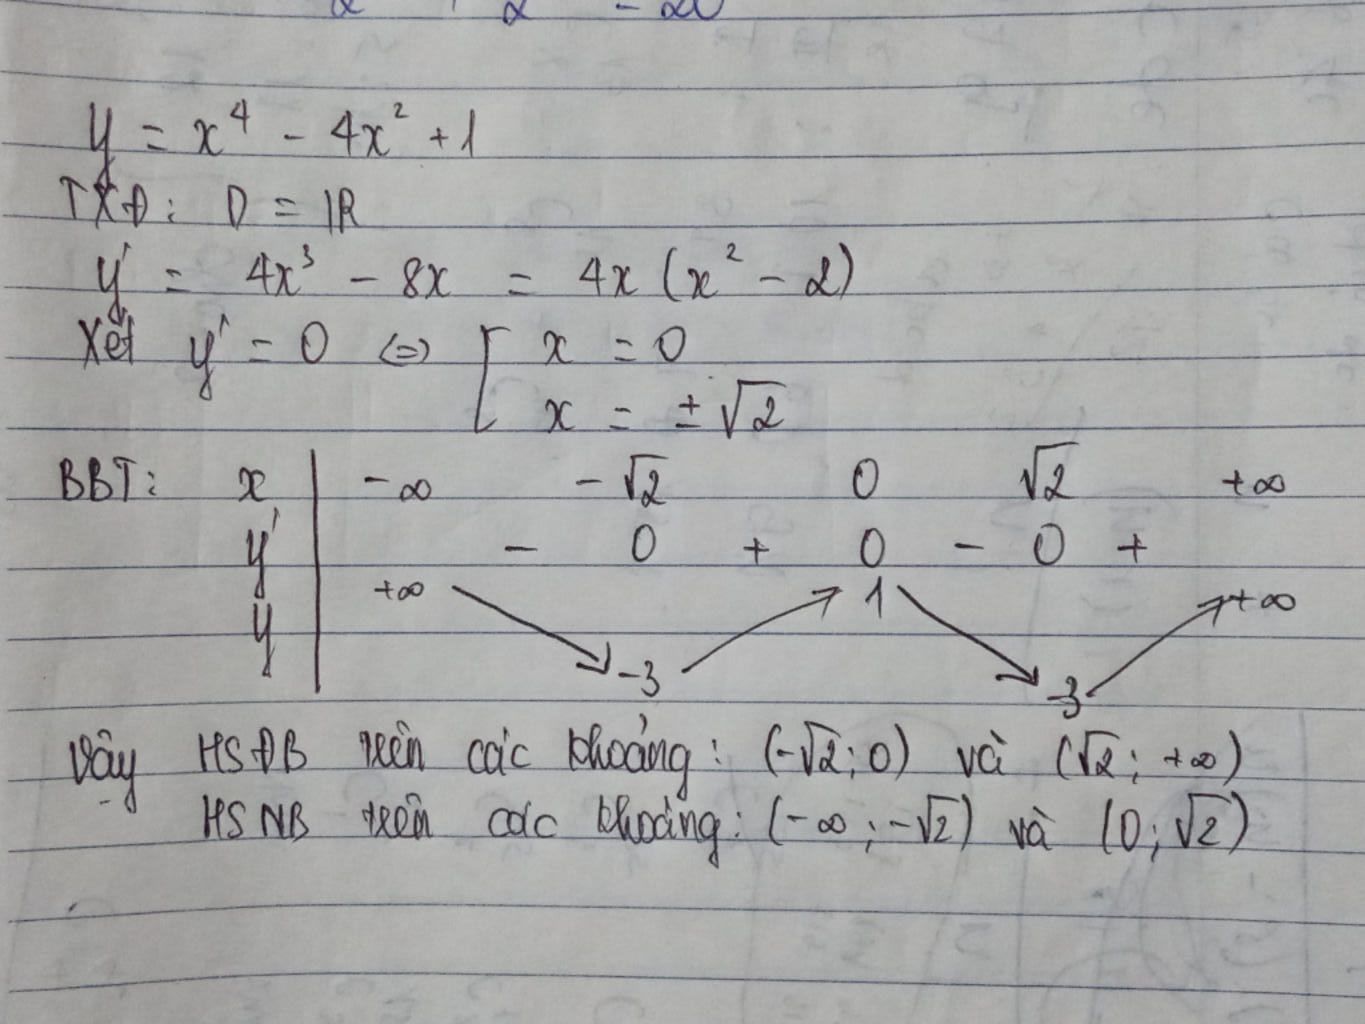 y = x⁴ - 4x² + 1
TXĐ: D = ℝ
y' = 4x³ - 8x = 4x (x² - 2)
Xét y' = 0 ⇔ [ x = 0
x = ±√2
BBT: x | -∞ -√2 0 √2 +∞
y' | - 0 + 0 - 0 +
+∞ 1 +∞
y
-3 -3
Vậy HSĐB trên các khoảng: (-√2; 0) và (√2; +∞)
HSNB trên các khoảng: (-∞; -√2) và (0; √2)